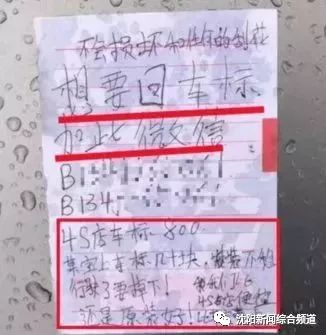 不会损坏和任何的刮花
想要回车标
加此微信
B1
B134
4S店车标-800.
某宝上车标几十块,
你装了要掉下!
还是原装好!
4S店便宜
沈阳新闻综合频道